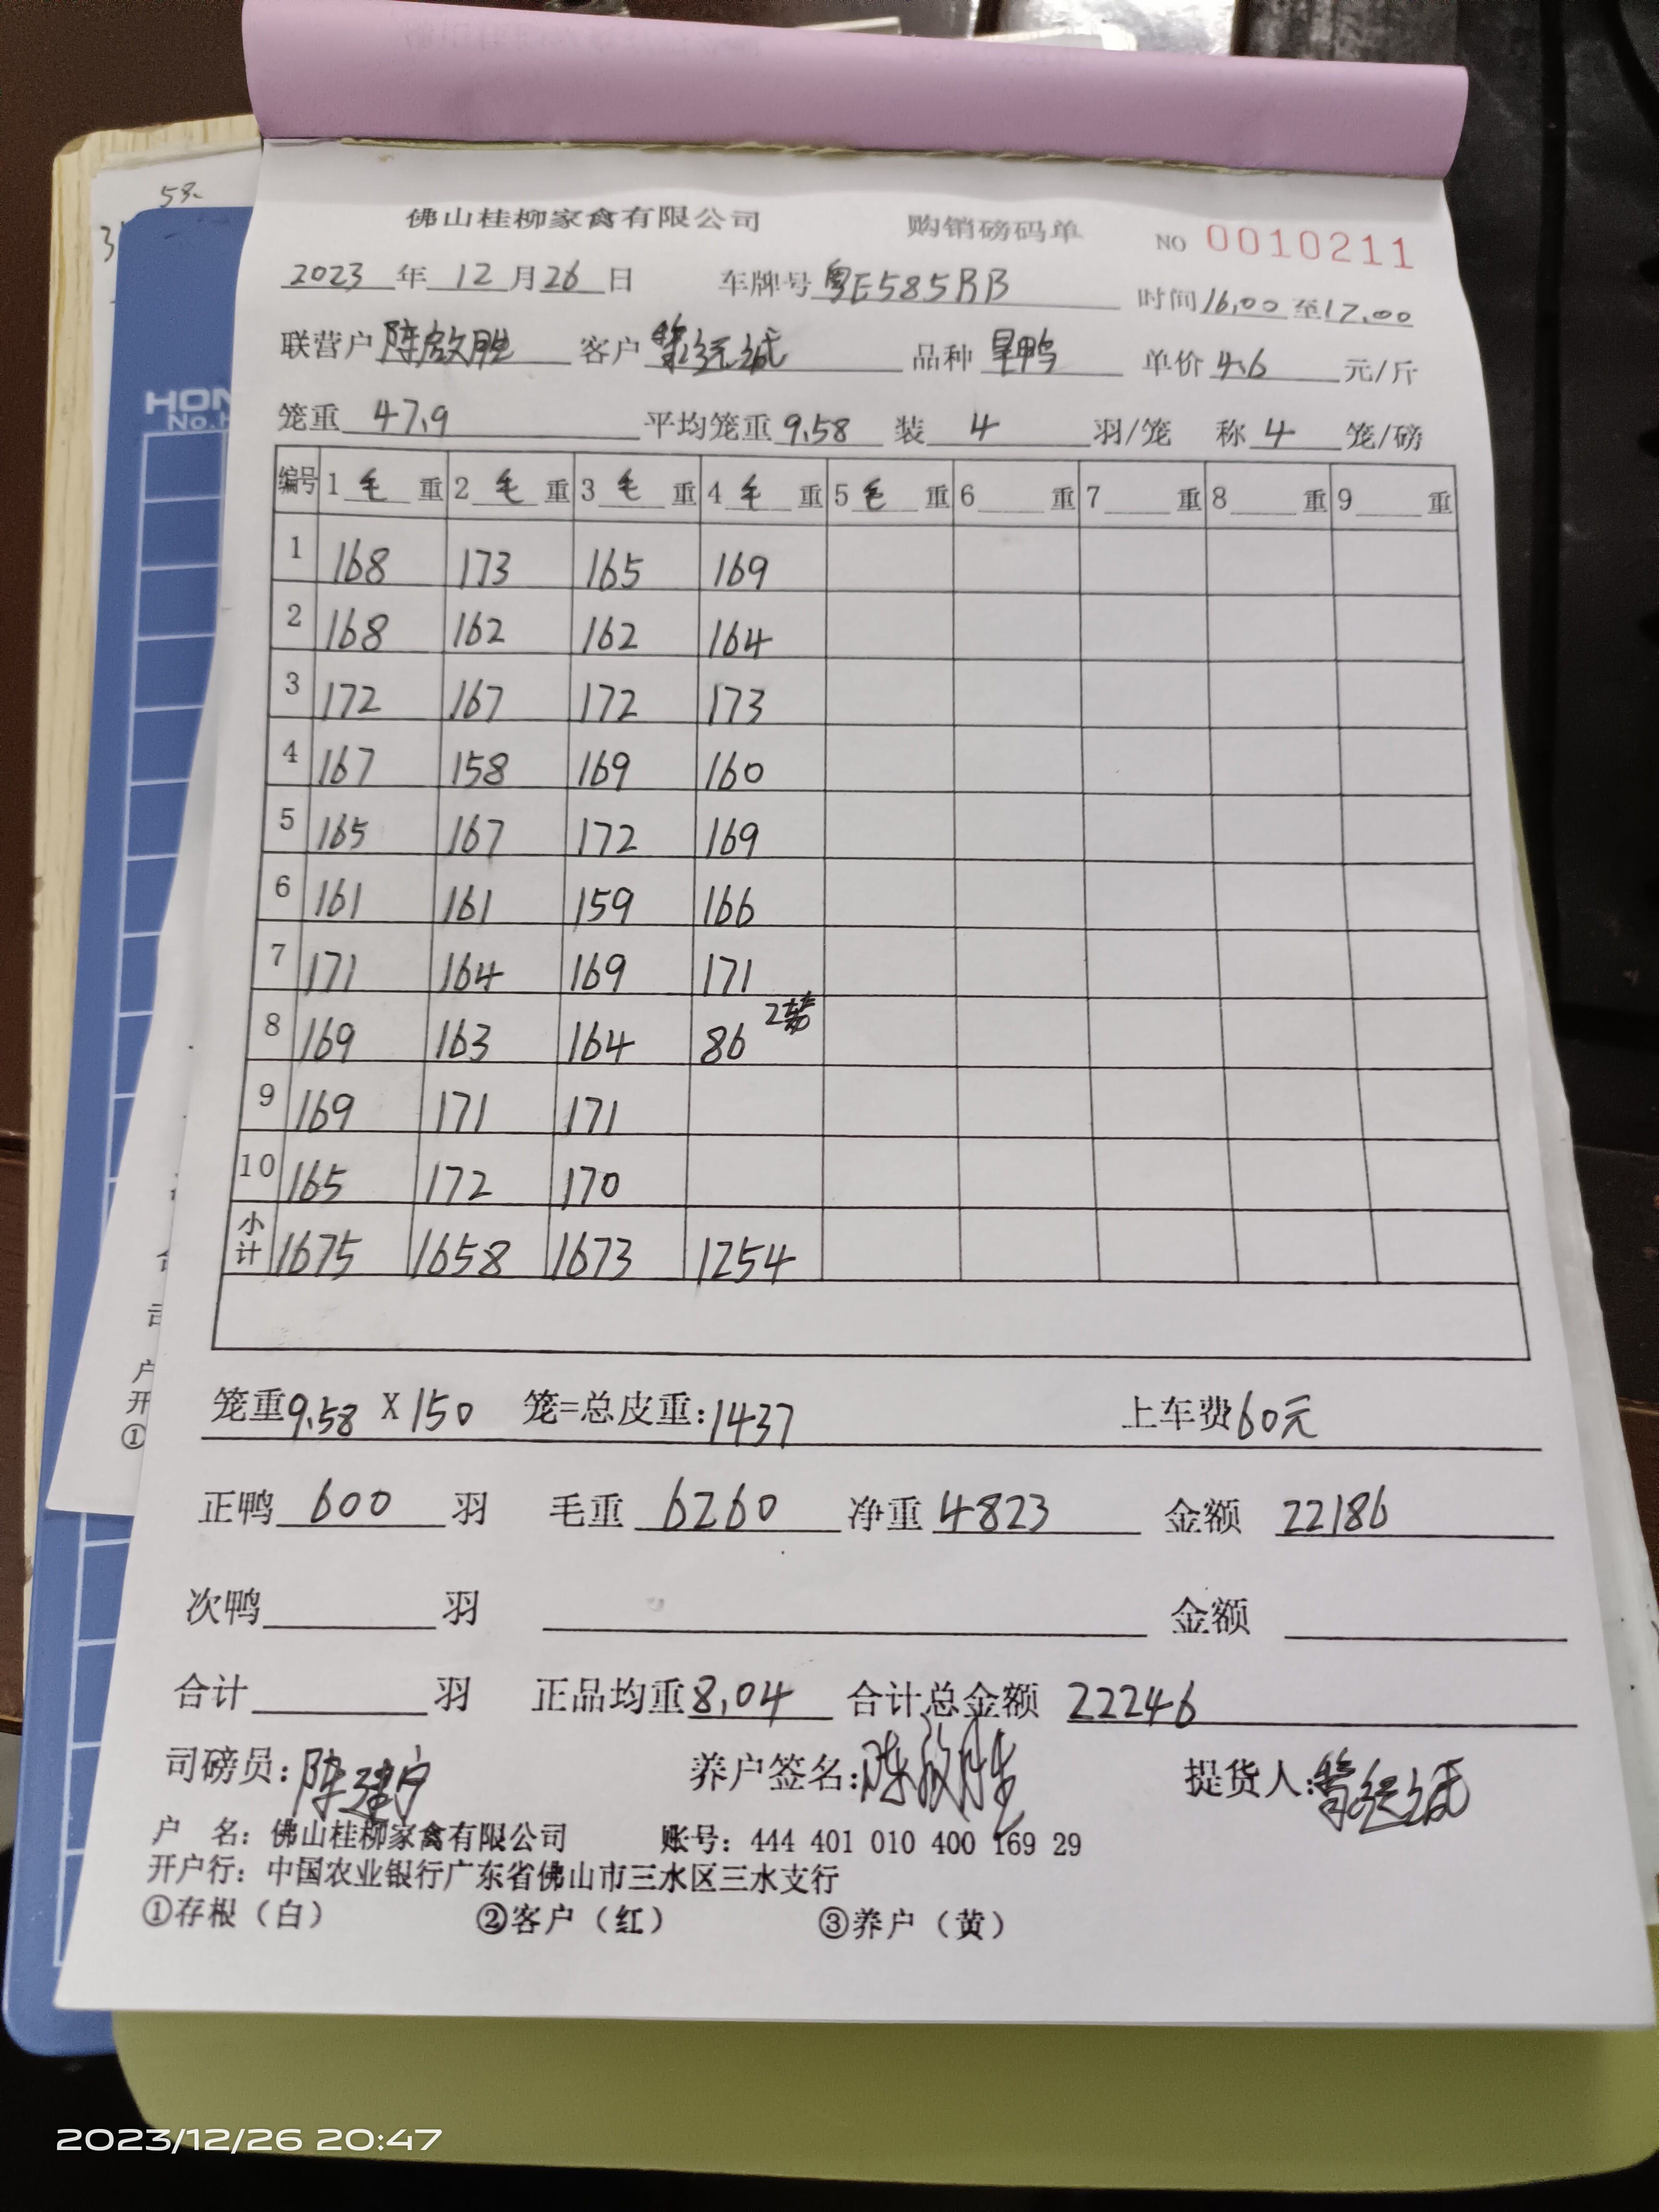 58
佛山桂柳家禽有限公司 购销磅码单 NO 0010211
2023年12月26日 车牌号粤E585RB 时间16.00至17.00
联营户陈啟胜 客户 品种旱鸭 单价4.6元/斤
笼重47.9 平均笼重9.58 装4羽/笼 称4笼/磅
编号 1毛重 2毛重 3毛重 4毛重 5毛重 6重 7重 8重 9重
1 168 173 165 169
2 168 162 162 164
3 172 167 172 173
4 167 158 169 160
5 165 167 172 169
6 161 161 159 166
7 171 164 169 171
8 169 163 164 86 2
9 169 171 171
10 165 172 170
小计 1675 1658 1673 1254
笼重9.58 X 150 笼=总皮重:1437 上车费60元
正鸭600羽 毛重6260 净重4823 金额22186
次鸭 羽 金额
合计 羽 正品均重8.04 合计总金额22246
司磅员: 养户签名:陈啟胜 提货人:
户 名: 佛山桂柳家禽有限公司 账号: 444 401 010 400 169 29
开户行: 中国农业银行广东省佛山市三水区三水支行
①存根（白） ②客户（红） ③养户（黄）
2023/12/26 20:47